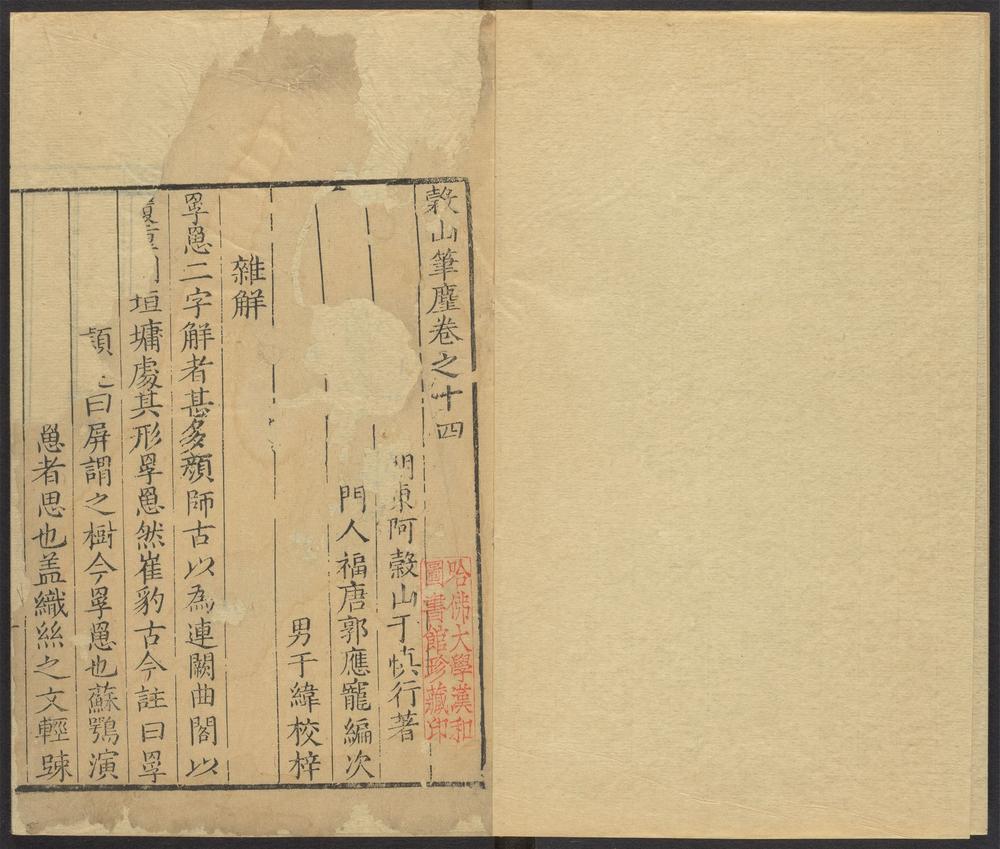 穀山筆麈卷之十四
明東阿穀山于慎行著
門人福唐郭應寵編次
男于緯校梓
雜解
罘罳二字解者甚多顏師古以為連闕曲閣以
垣墉處其形罘罳然崔豹古今註曰罘
曰屏謂之樹今罘罳也蘇鶚演
罳者思也盖織絲之文輕踈
哈佛大學漢和
圖書館珍藏印